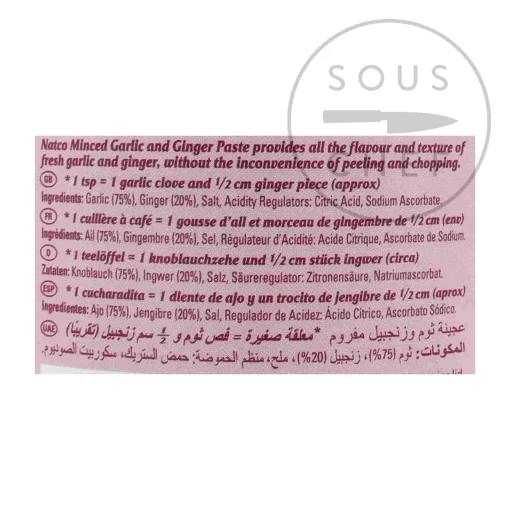 SOUS
CHEF
Natco Minced Garlic and Ginger Paste provides all the flavour and texture of
fresh garlic and ginger, without the inconvenience of peeling and chopping.
GB * 1 tsp = 1 garlic clove and 1/2 cm ginger piece (approx)
Ingredients: Garlic (75%), Ginger (20%), Salt, Acidity Regulators: Citric Acid, Sodium Ascorbate.
FR * 1 cuillère à café = 1 gousse d'ail et morceau de gingembre de 1/2 cm (env)
Ingrédients: Ail (75%), Gingembre (20%), Sel, Régulateur d'Acidité: Acide Citrique, Ascorbate de Sodium.
D * 1 teelöffel = 1 knoblauchzehe und 1/2 cm stück ingwer (circa)
Zutaten: Knoblauch (75%), Ingwer (20%), Salz, Säureregulator: Zitronensäure, Natriumascorbat.
ESP * 1 cucharadita = 1 diente de ajo y un trocito de jengibre de 1/2 cm (aprox)
Ingredientes: Ajo (75%), Jengibre (20%), Sal, Regulador de Acidez: Ácido Cítrico, Ascorbato Sódico.
UAE عجينة ثوم وزنجبيل مفروم *معلقة صغيرة = فص ثوم و 1/2 سم زنجبيل (تقريبًا)
المكونات: ثوم (75%)، زنجبيل (20%)، ملح، منظم الحموضة: حمض الستريك، سكوربيت الصوديوم.